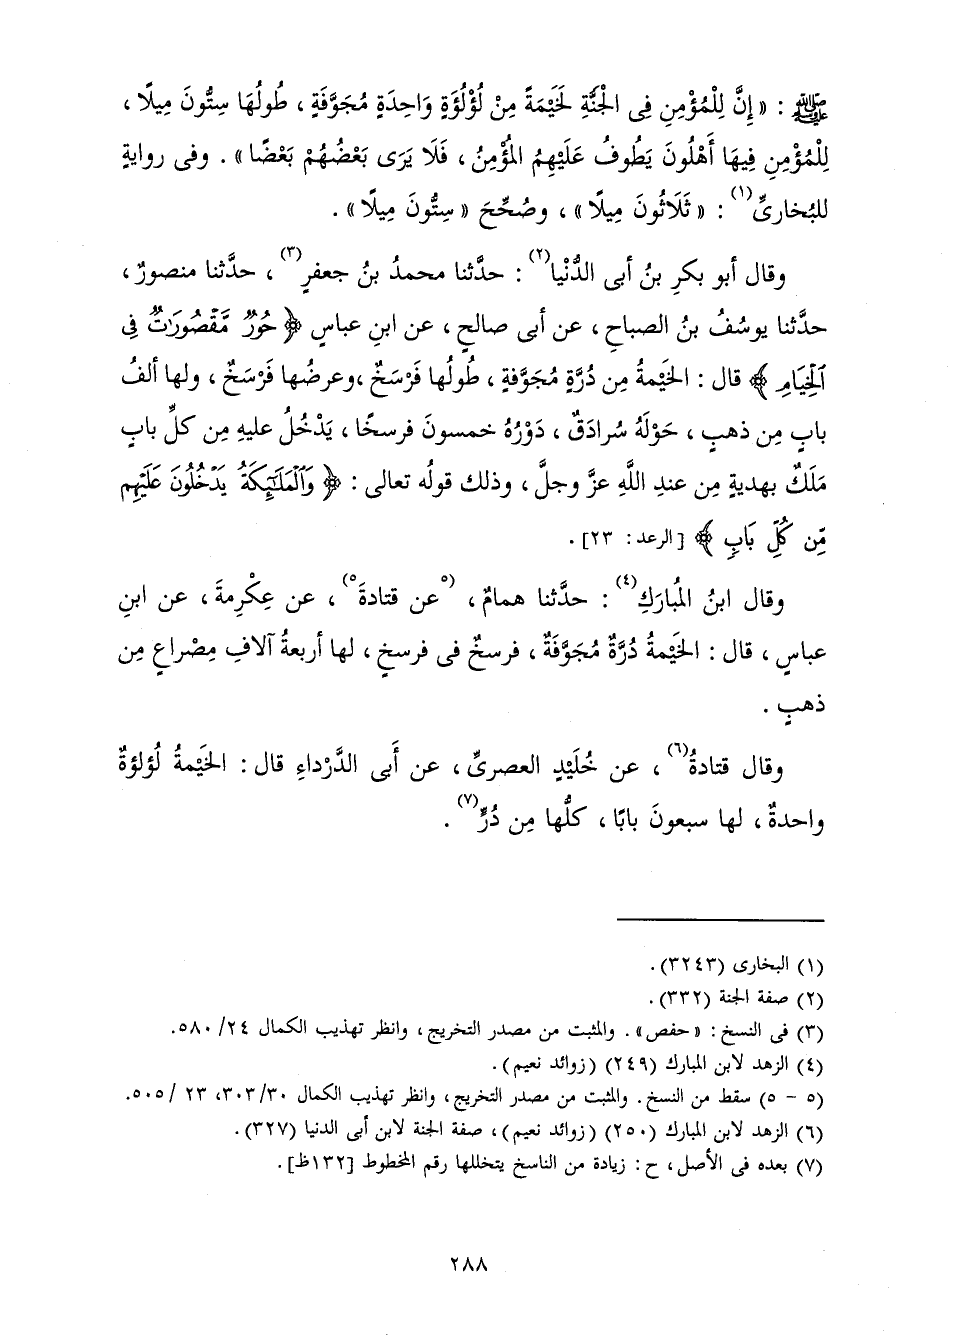 ﷺ : « إِنَّ لِلْمُؤْمِنِ فِى الْجَنَّةِ لَخَيْمَةً مِنْ لُؤْلُؤَةٍ وَاحِدَةٍ مُجَوَّفَةٍ ، طُولُهَا سِتُّونَ مِيلًا ،
لِلْمُؤْمِنِ فِيهَا أَهْلُونَ يَطُوفُ عَلَيْهِمُ الْمُؤْمِنُ ، فَلَا يَرَى بَعْضُهُمْ بَعْضًا » . وفى روايةِ
للبُخارىِّ(١) : « ثَلَاثُونَ مِيلًا » ، وصُحِّحَ « سِتُّونَ مِيلًا » .
وقال أبو بكرِ بنُ أبى الدُّنْيا(٢) : حدَّثنا محمدُ بنُ جعفرٍ(٣) ، حدَّثنا منصورٌ ،
حدَّثنا يوسُفُ بنُ الصباحِ ، عن أبى صالحٍ ، عن ابنِ عباسٍ ﴿ حُورٌ مَّقْصُورَاتٌ فِى
اَلْخِيَامِ ﴾ قال : الخَيْمةُ مِن دُرَّةٍ مُجَوَّفةٍ ، طُولُها فَرْسَخٌ ،وعرضُها فَرْسَخٌ ، ولها ألفُ
بابٍ مِن ذهبٍ ، حَوْلَهُ سُرادَقٌ ، دَوْرُهُ خمسونَ فرسخًا ، يَدْخُلُ عليهِ مِن كلِّ بابٍ
مَلَكٌ بهديةٍ مِن عندِ اللَّهِ عزَّ وجلَّ ، وذلك قولُه تعالى : ﴿ وَاَلْمَلَٰٓئِكَةُ يَدْخُلُونَ عَلَيْهِم
مِّن كُلِّ بَابٍ ﴾ [الرعد: ٢٣] .
وقال ابنُ المُبارَكِ(٤) : حدَّثنا همامٌ ، (٥عن قتادةَ٥) ، عن عِكْرِمةَ ، عن ابنِ
عباسٍ ، قال : الخَيْمةُ دُرَّةٌ مُجَوَّفَةٌ ، فرسخٌ فى فرسخٍ ، لها أربعةُ آلافِ مِصْراعٍ مِن
ذهبٍ .
وقال قتادةُ(٦) ، عن خُلَيْدٍ العصرىِّ ، عن أَبى الدَّرْداءِ قال : الخَيْمةُ لُؤلؤةٌ
واحدةٌ ، لها سبعونَ بابًا ، كلُّها مِن دُرٍّ(٧) .
(١) البخارى (٣٢٤٣) .
(٢) صفة الجنة (٣٣٢) .
(٣) فى النسخ : « حفص » . والمثبت من مصدر التخريج ، وانظر تهذيب الكمال ٢٤/ ٥٨٠.
(٤) الزهد لابن المبارك (٢٤٩) (زوائد نعيم) .
(٥ - ٥) سقط من النسخ . والمثبت من مصدر التخريج ، وانظر تهذيب الكمال ٣٠/٣٠٣، ٢٣ /٥٠٥.
(٦) الزهد لابن المبارك (٢٥٠) (زوائد نعيم) ، صفة الجنة لابن أبى الدنيا (٣٢٧) .
(٧) بعده فى الأصل ، ح : زيادة من الناسخ يتخللها رقم المخطوط [١٣٢ظ] .
٢٨٨